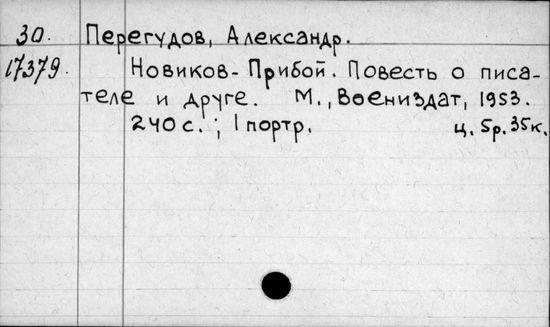 30. Перегудов, Александр.
17379. Новиков-Прибой. Повесть о писа-
теле и друге. М., Воениздат, 1953.
240 с.; 1 портр. ц. 5р. 35к.